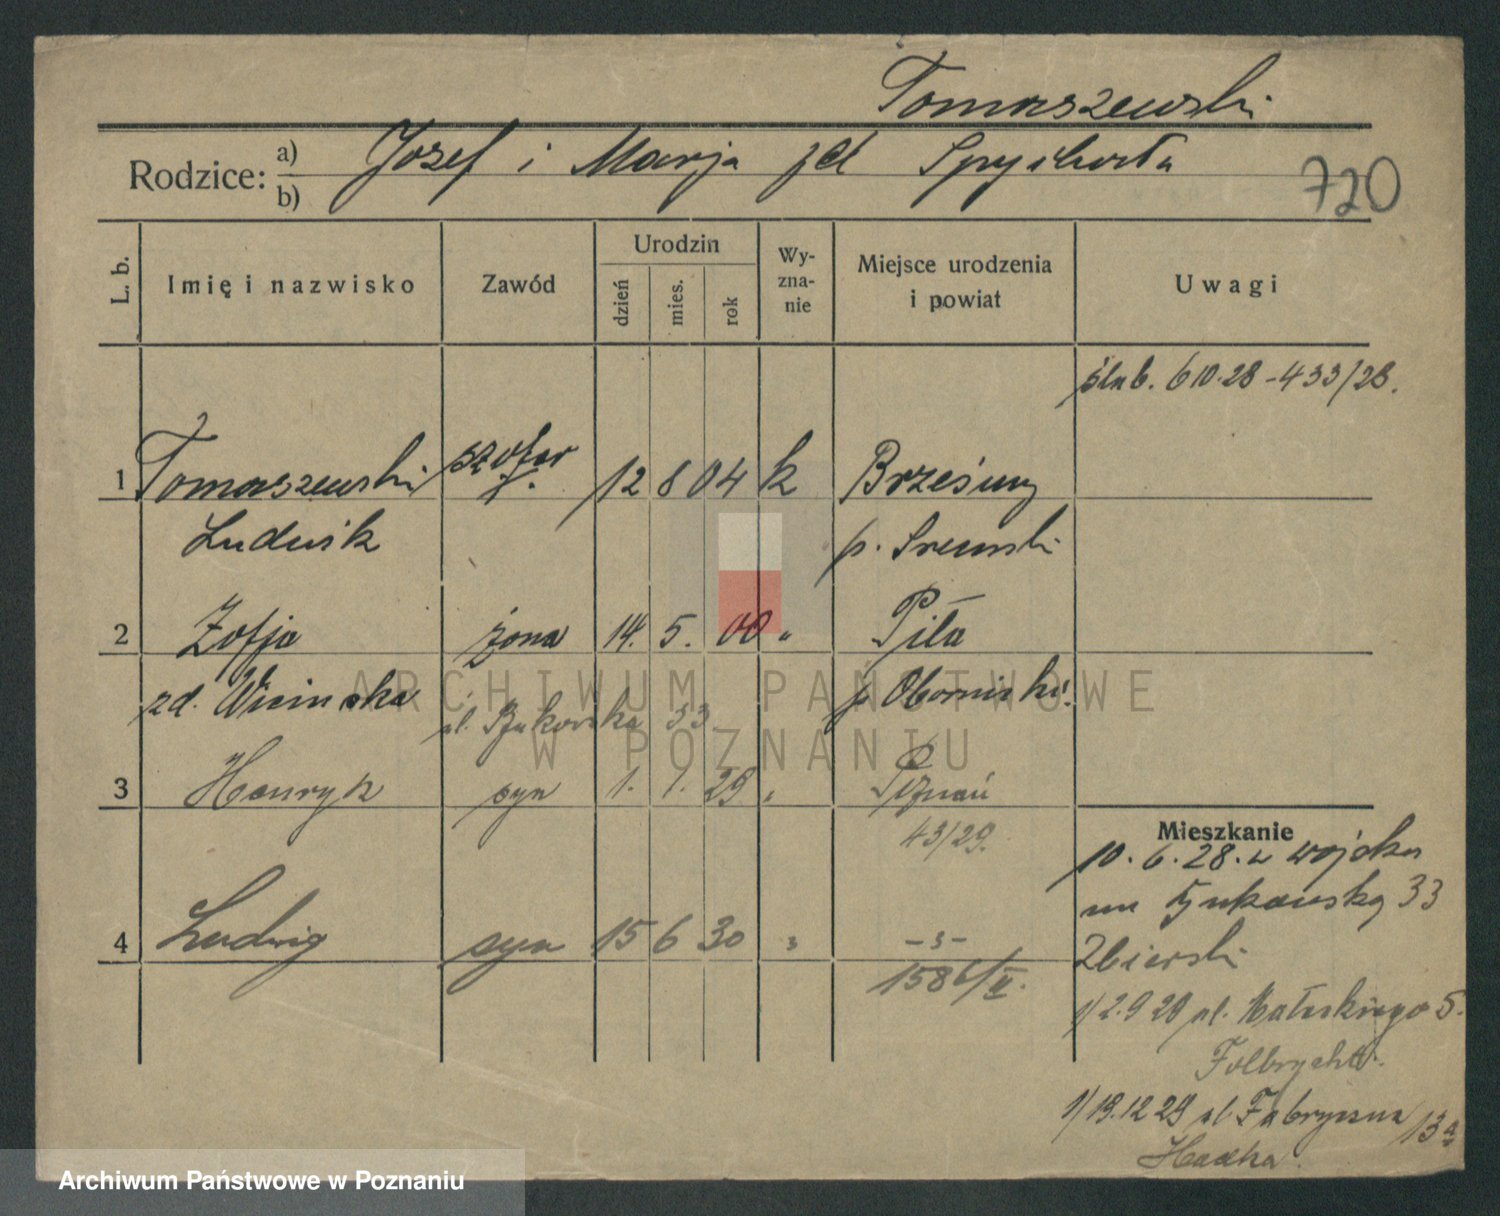 Tomaszewski
Rodzice: a) Jozef i Marja zd Spychała
b)
720
L. b. Imię i nazwisko Zawód Urodzin dzień mies. rok Wy-zna-nie Miejsce urodzenia i powiat Uwagi
ślub. 6 10.28 - 433/28.
1 Tomaszewski szofer 12 8 04 k
Ludwik p. Sremski
2 Zofja żona 14. 5. 00 " Piła
zd. p Obornicki
ul. Bukowska 33
3 Henryk syn 1. 1. 29 " Poznań
43/29.
Mieszkanie
10. 6. 28. z wojska
33
4 Ludwig syn 15 6 30 " - " -
Zbierski
1586/II.
1/2.9.28 ul. 5.
1/19.12 29 ul Fabryczna 13a
ARCHIWUM PAŃSTWOWE
W POZNANIU
Archiwum Państwowe w Poznaniu